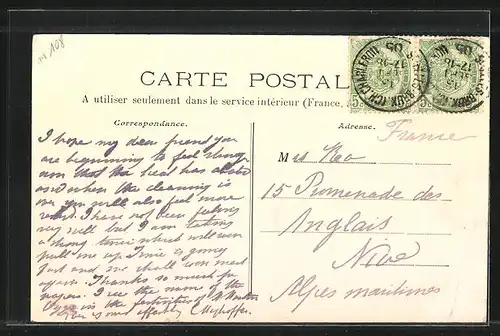 108
CARTE POSTALE
A utiliser seulement dans le service intérieur (France,
Correspondance.
Adresse.
France
I hope my dear friend you
are beginning to feel strong
now that the heat has abated
and when the cleaning is
over you will also feel more
rested. I have not been feeling
very well but I am taking
a strong tonic which will soon
pull me up. Time is going
fast and we shall soon meet
again. Thanks so much for
papers. I see the name of the
is in the of
Yours most affectly
Miss
15 Promenade des
Anglais
Nice
Alpes maritimes